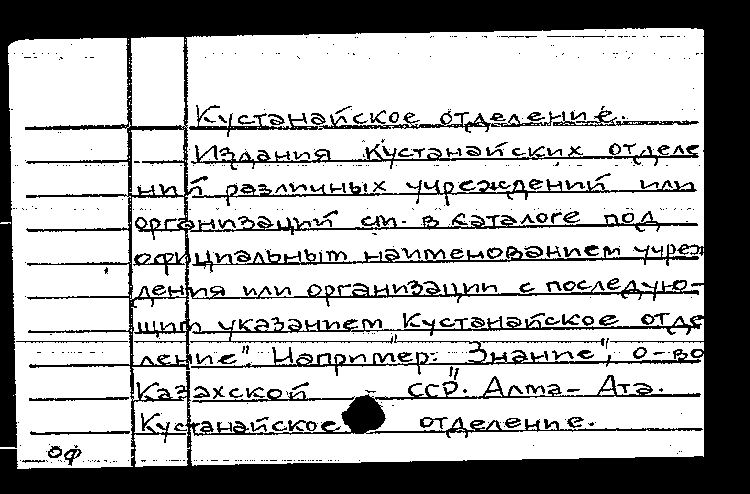 Кустанайское отделение.
Издания Кустанайских отделе
ний различных учреждений или
организаций см. в каталоге под
официальным наименованием учреж
дения или организации с последую-
щим указанием "Кустанайское отде
ление". Например: "Знание", о-во
Казахской ССР. Алма-Ата.
Кустанайское отделение.
оф